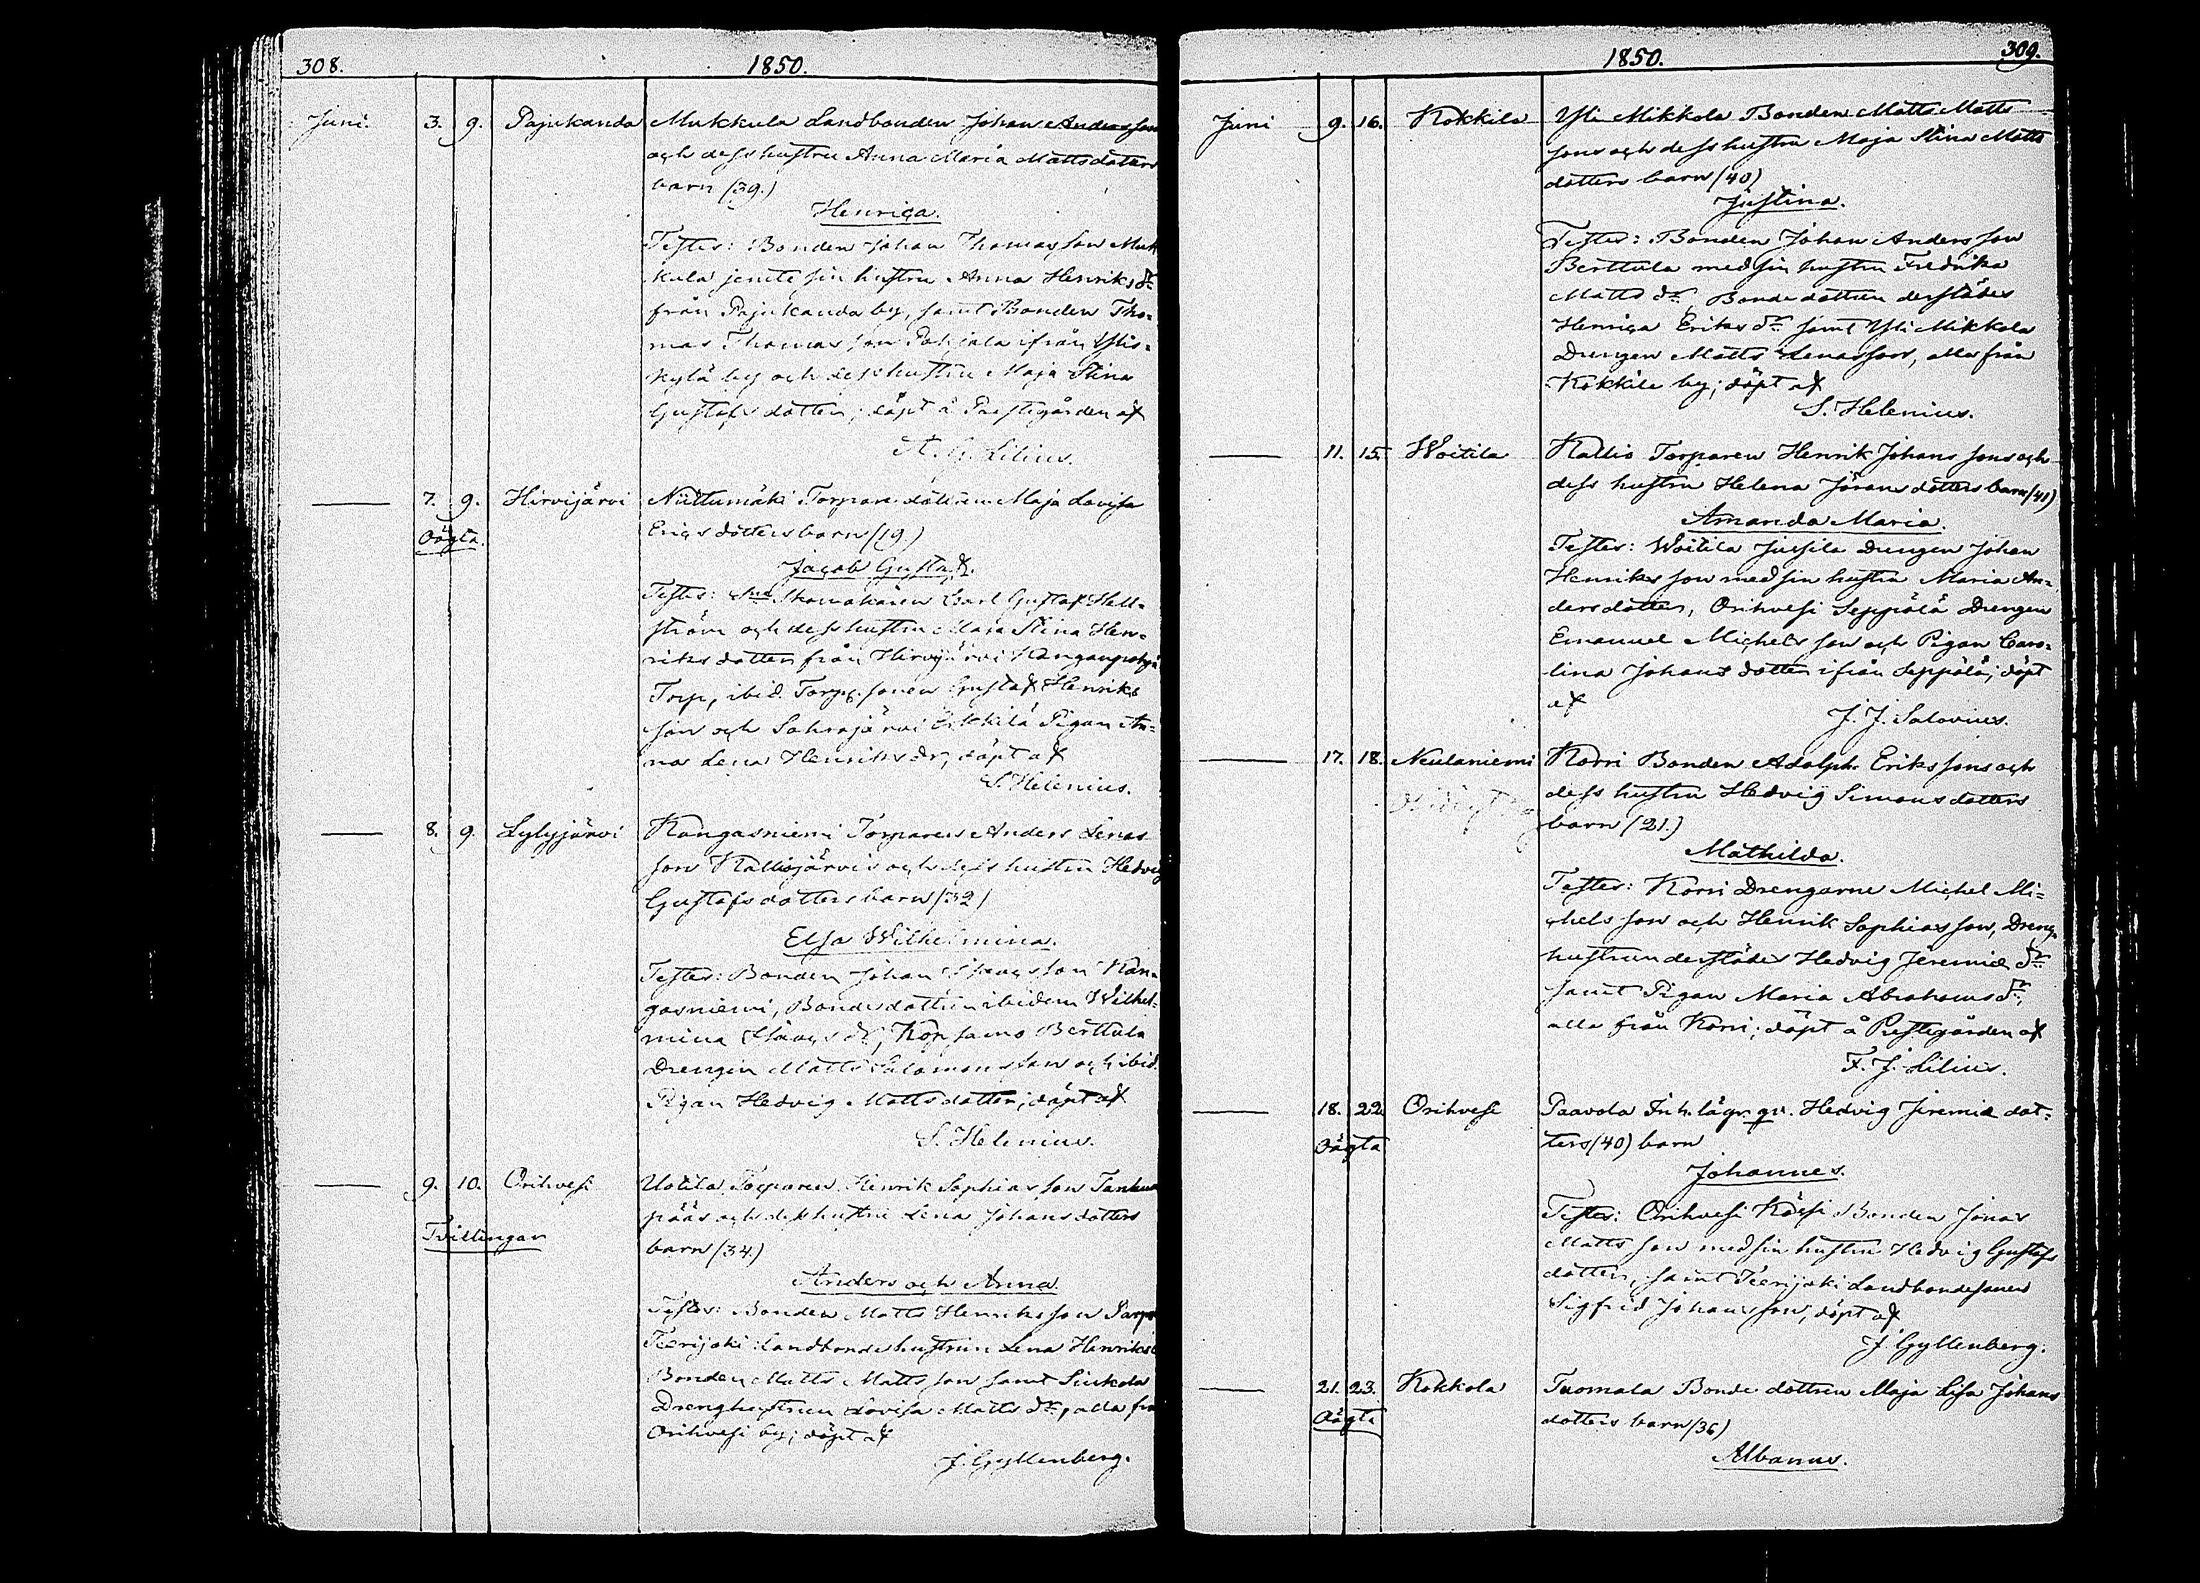 308.
1850.
Juni. 3. 9. Pajukanda Mukkula Landbonden Johan Andersson
och dess hustru Anna Maria Mattsdotters
barn (39.)
Henrica.
Testes: Bonden Johan Thomasson Muk
kula jemte sin hustru Anna Henriks dr
från Pajukanda by, samt Bonden Tho=
mas Thomasson Pohjala ifrån Ylis=
kylä by och dess hustru Maja Stina
Gustafsdotter; döpt å Prestegården af
A. G. Lilius.
7. 9. Hirvijärvi Niittumäki Torpare dottren Maja Lovisa
Oägta. Ericsdotters barn (19)
Jacob Gustaf.
Testes: Skomakaren Carl Gustaf Hell=
ström och dess hustru Maja Stina Hen=
riksdotter från Hirvijärvi Kangaspohja
Torp, ibid. Torp. sonen Gustaf Henriks
son och Sahrajärvi Erkkilä Pigan An=
na Lena Henriks dr; döpt af
S. Helenius.
8. 9. Lylyjärvi Kangasniemi Torparen Anders Lenas
son Kalliojärvis och dess hustru Hedvig
Gustafsdotters barn (32)
Elsa Wilhelmina.
Testes: Bonden Johan Isaacsson Kan=
gasniemi, Bondedottren ibidem Wilhel=
mina Isaacs dr, Kopsamo Berttula
Drengen Matts Salomonsson och ibid.
Pigan Hedvig Mattsdotter; döpt af
S. Helenius.
9. 10. Orihvesi Uotila Torparen Henrik Sophiasson Tanhua
Tvillingar pääs och dess hustru Lena Johansdotters
barn (34.)
Anders och Anna
Testes: Bonden Matts Henriksson Sarp
Teerijoki Landbondehustrun Lena Henriks
Bonden Matts Mattsson samt Siukola
Drenghustrun Lovisa Matts dr, alla frå
Orihvesi by; döpt af
J. Gyllenberg.
1850.
309.
Juni 9. 16. Kokkila Yli Mikkola Bonden Matts Matts
sons och dess hustru Maja Stina Matts
dotters barn (40)
Justina.
Testes: Bonden Johan Andersson
Berttula med sin hustru Fredrika
Matts dr, Bondedottren derstädes
Henrica Eriks dr samt Yli Mikkola
Drengen Matts Lenasson, alla från
Kokkila by; döpt af
S. Helenius.
11. 15. Woitila Kallio Torparen Henrik Johanssons och
dess hustru Helena Jöransdotters barn (41)
Amanda Maria.
Testes: Woitila Jussila Drengen Johan
Henriksson med sin hustru Maria An=
dersdotter, Orihvesi Seppälä Drengen
Emanuel Michelsson och Pigan Caro=
lina Johansdotter ifrån Seppälä; döpt
af
J. J. Salovius.
17. 18. Neulaniemi Korri Bonden Adolph Erikssons och
dess hustru Hedvig Simonsdotters
barn (21.)
Mathilda.
Testes: Korri Drengarne Michel Mi=
chelsson och Henrik Sophiasson, Dreng
hustrun derstädes Hedvig Jeremiæ dr
samt Pigan Maria Abrahams dr,
alla från Korri; döpt å Prestegården af
F. J. Lilius.
18. 22. Orihvesi Paavola Inh. lägr. qv. Hedvig Jeremiæ dot=
Oägta ters (40) barn
Johannes.
Testes: Orihvesi Kässi Bonden Jonas
Mattsson med sin hustru Hedvig Gustafs
dotter, samt Teerijoki Landbondesonen
Sigfrid Johansson; döpt af
J. Gyllenberg.
21. 23. Kokkola Tuomala Bonde dottren Maja Lisa Johans
Oägta dotters barn (36)
Albanus.